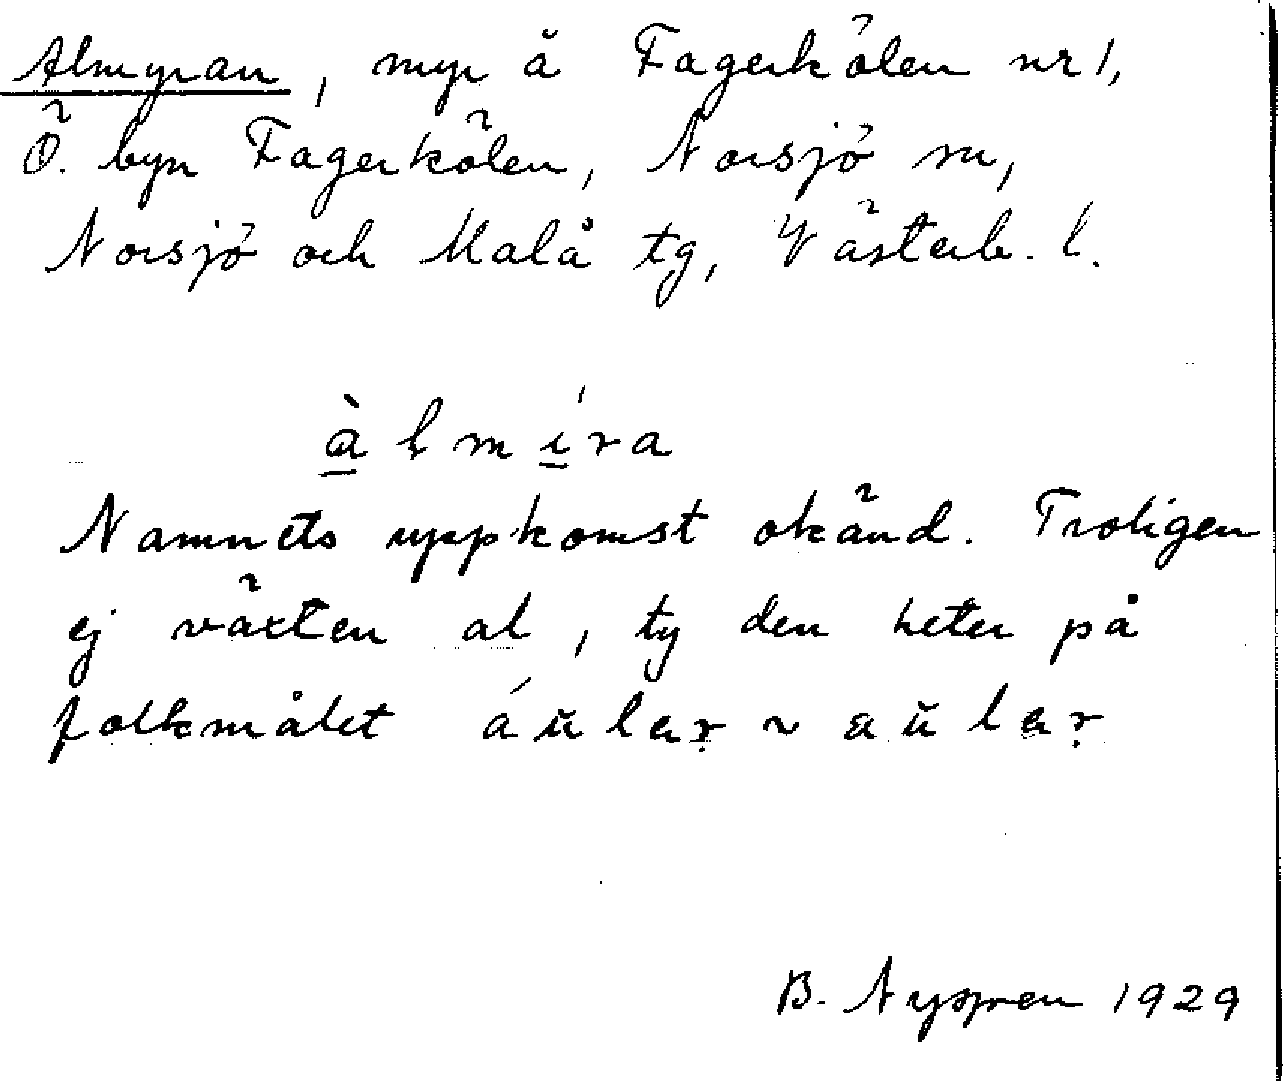 Almyran, myr å Fagerkölen nr 1,
Ö. byn Fagerkölen, Norsjö sn,
Norsjö och Malå tg, Västerb. l.
àlmíra
Namnets uppkomst okänd. Troligen
ej växten al, ty den heter på
folkmålet áŭlar ~ aŭlar
B. 1929